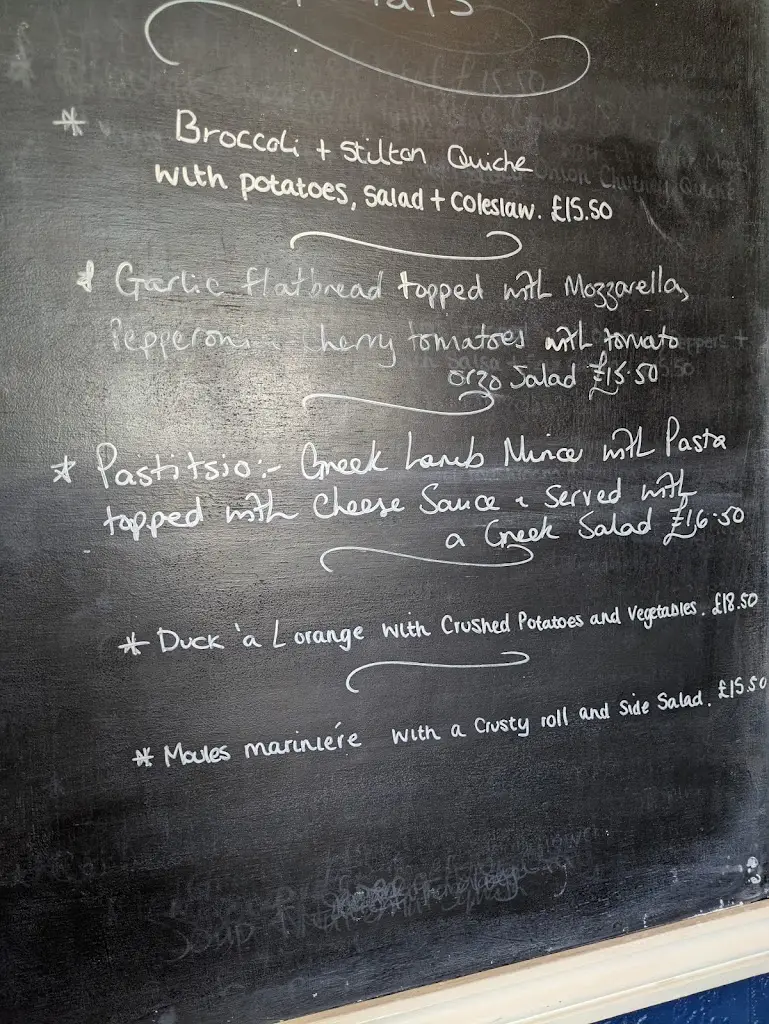 * Broccoli + Stilton Quiche
with potatoes, salad + coleslaw. £15.50
* Garlic flatbread topped with Mozzarella,
Pepperoni + cherry tomatoes with tomato
orzo Salad £15.50
* Pastitsio:- Greek Lamb Mince with Pasta
topped with Cheese Sauce & Served with
a Greek Salad £16.50
* Duck 'a L orange with Crushed Potatoes and Vegetables. £18.50
* Moules mariniére with a Crusty roll and Side Salad. £15.50
Soup